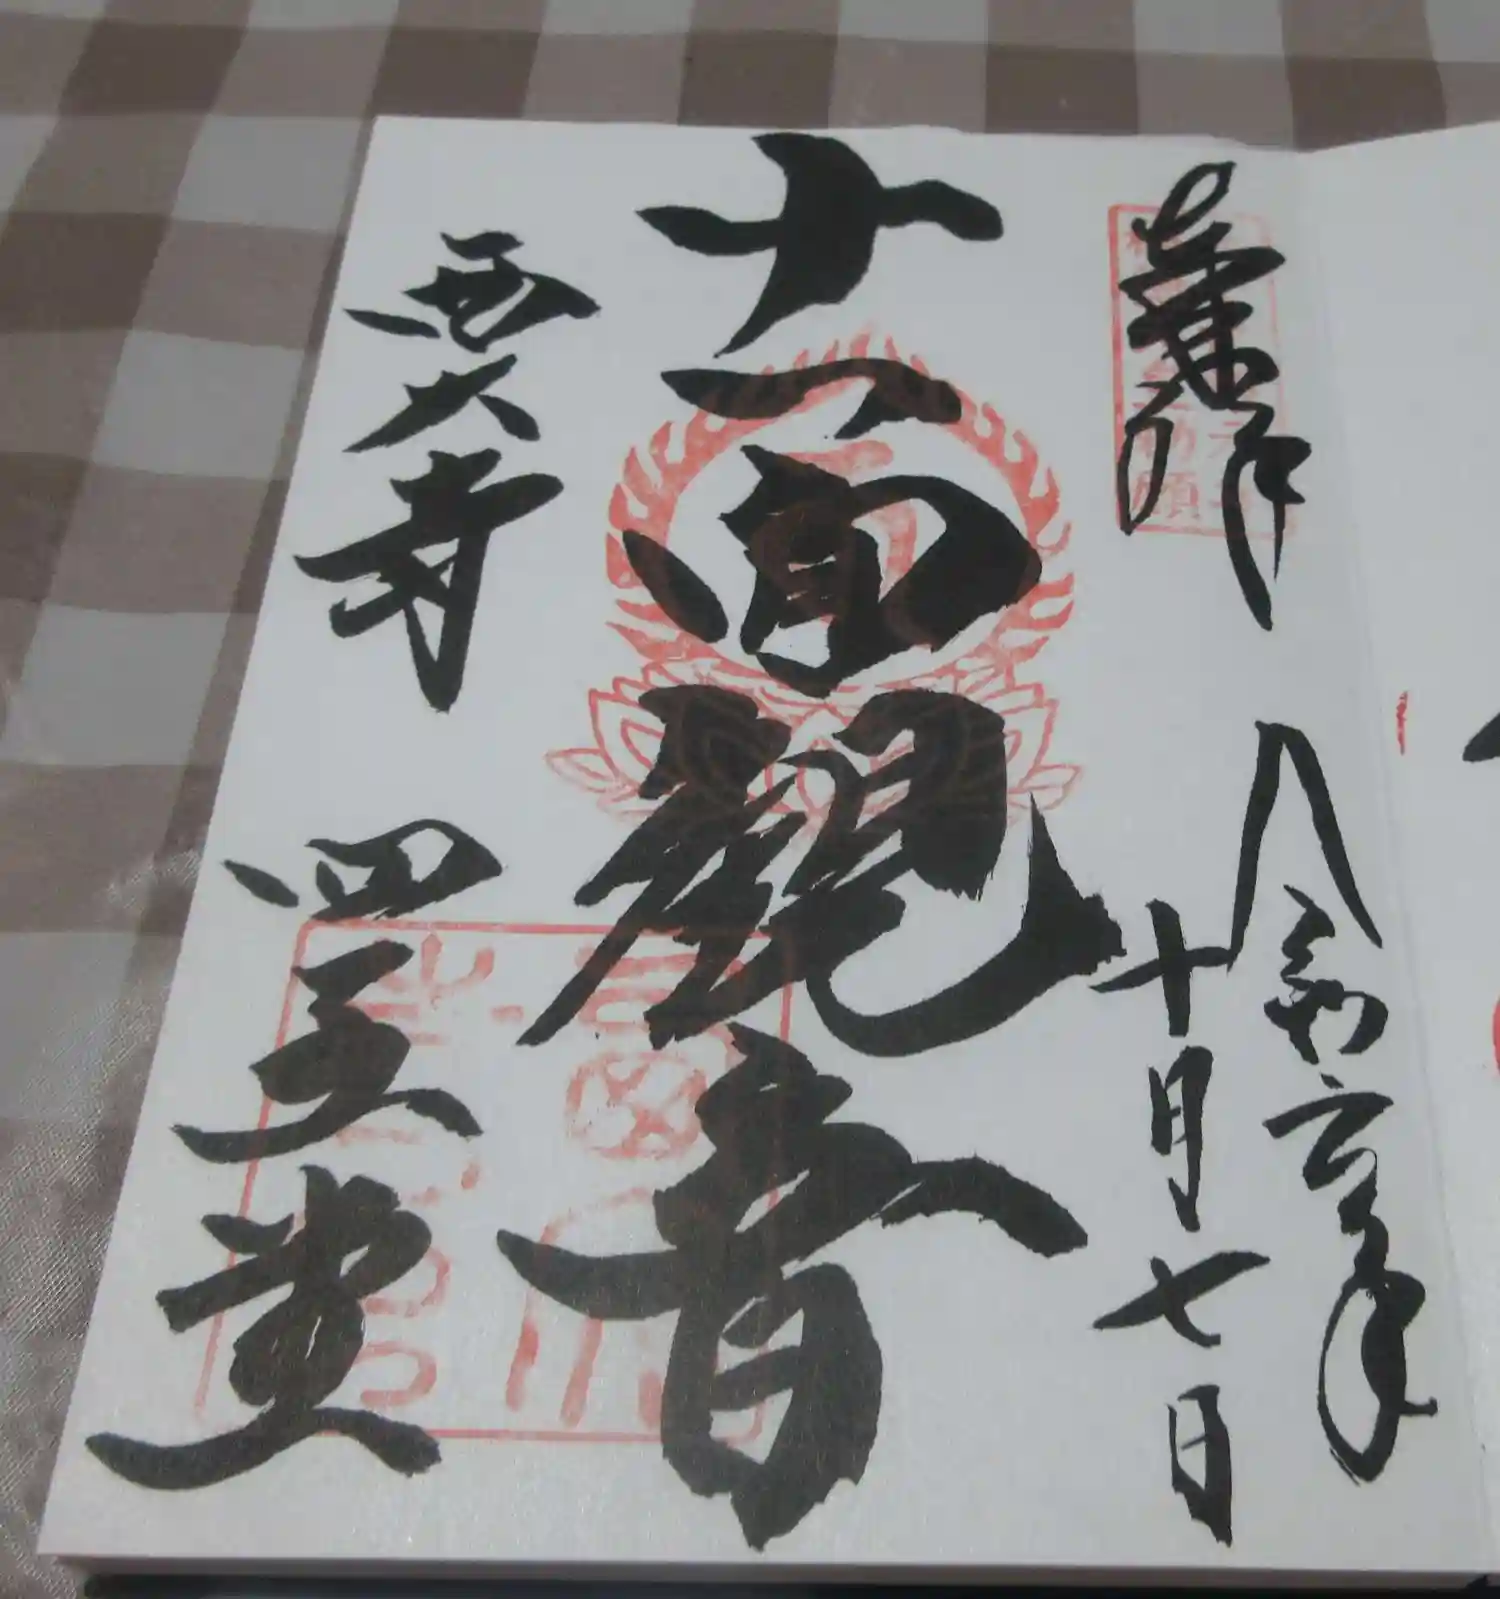 奉拝
令和六年
十月七日
十一面観音
西大寺 四王堂